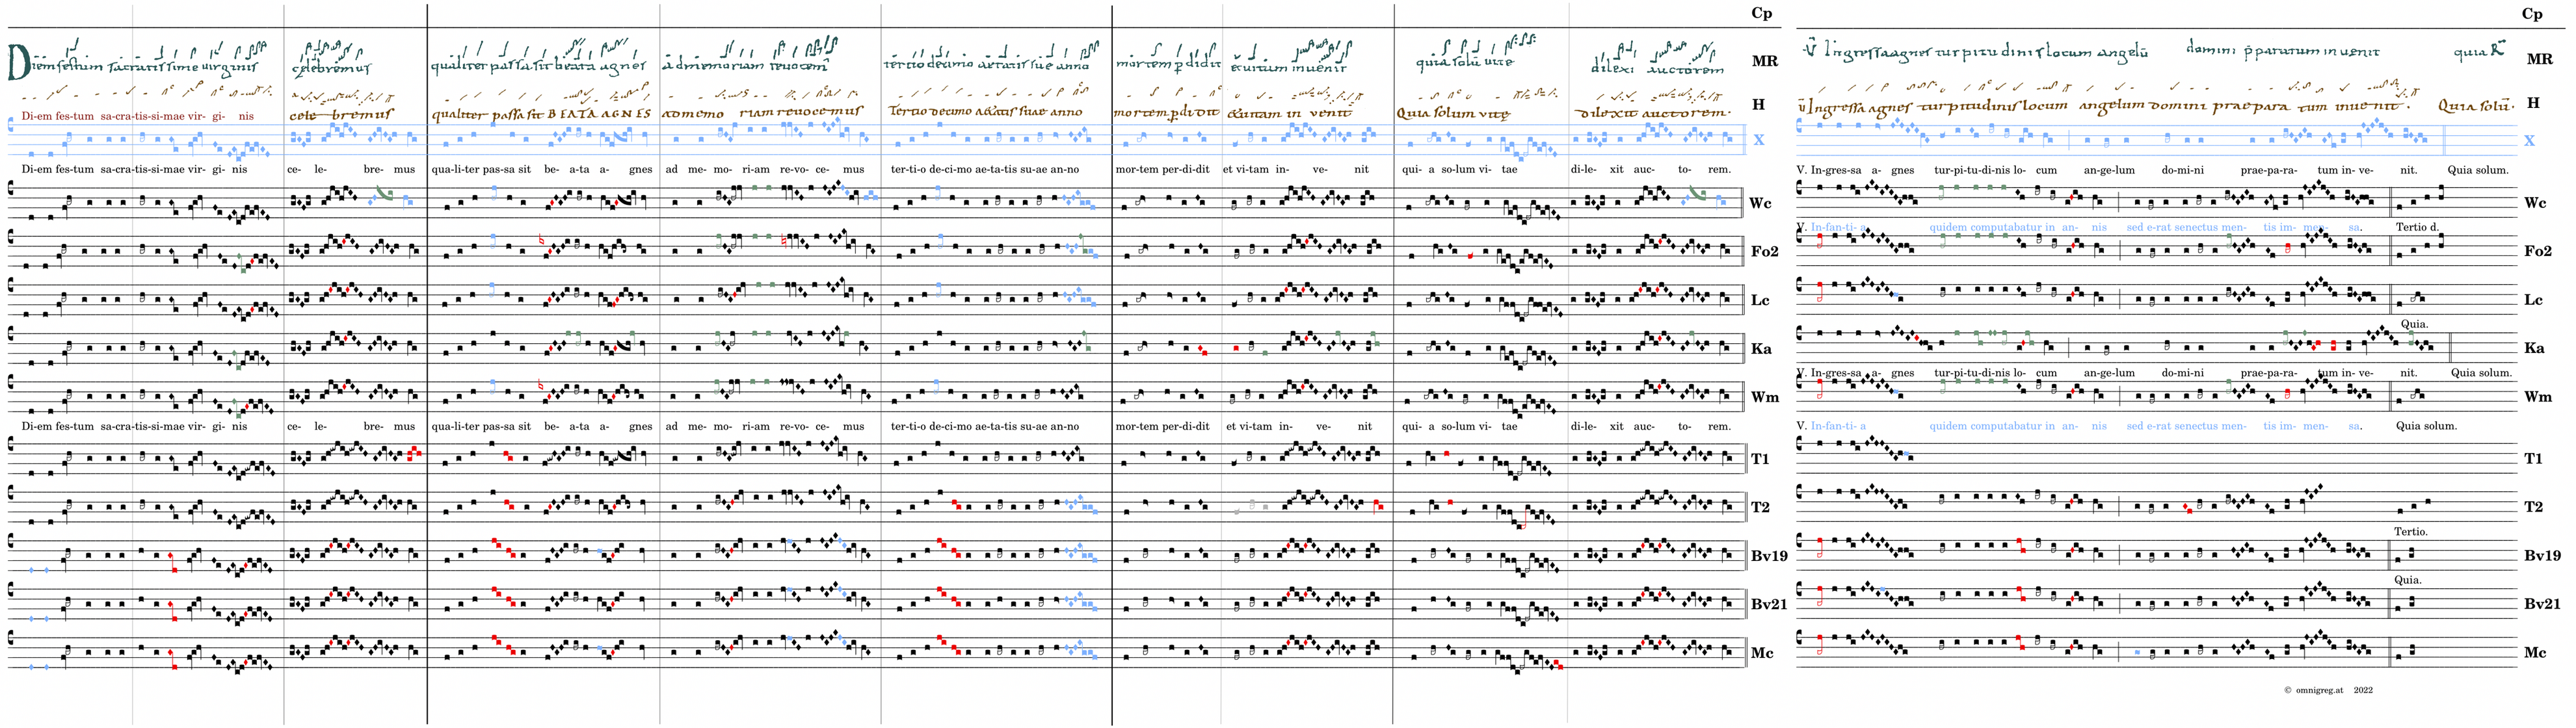 Cp Cp
Diem festum sacratissime virginis celebremus qualiter passa sit beata agnes ad memoriam revocem tertio decimo aetatis sue anno mortem perdidit et vitam invenit quia solū vite dilexi auctorem MR V Ingressa agnes turpitudinis locum angelū domini p̄paratum invenit quia R MR
Di-em fes-tum sa-cra-tis-si-mae vir- gi- nis celebremus qualiter passa sit BEATA AGNES ad memoriam revocemus Tertio decimo aetatis suae anno mortem perdidit & vitam invenit Quia solum vitę dilexit auctorem. H V Ingressa agnes turpitudinis locum angelum domini praeparatum invenit. Quia solū. H
X X
Di-em fes-tum sa-cra-tis-si-mae vir- gi- nis ce- le- bre- mus qua-li-ter pas-sa sit be- a-ta a- gnes ad me- mo- ri-am re-vo- ce- mus ter-ti-o de-ci-mo ae-ta-tis su-ae an-no mor-tem per-di-dit et vi-tam in- ve- nit qui- a so-lum vi- tae di-le- xit auc- to- rem. V. In-gres-sa a- gnes tur-pi-tu-di-nis lo- cum an-ge-lum do-mi-ni prae-pa-ra- tum in- ve- nit. Quia solum.
Wc Wc
V. In-fan-ti- a quidem computabatur in an- nis sed e-rat senectus men- tis im- men- sa. Tertio d.
Fo2 Fo2
Lc Lc
Quia.
Ka Ka
V. In-gres-sa a- gnes tur-pi-tu-di-nis lo- cum an-ge-lum do-mi-ni prae-pa-ra- tum in- ve- nit. Quia solum.
Wm Wm
Di-em fes-tum sa-cra-tis-si-mae vir- gi- nis ce- le- bre- mus qua-li-ter pas-sa sit be- a-ta a- gnes ad me- mo- ri-am re-vo- ce- mus ter-ti-o de-ci-mo ae-ta-tis su-ae an-no mor-tem per-di-dit et vi-tam in- ve- nit qui- a so-lum vi- tae di-le- xit auc- to- rem. V. In-fan-ti- a quidem computabatur in an- nis sed e-rat senectus men- tis im- men- sa. Quia solum.
T1 T1
T2 T2
Tertio.
Bv19 Bv19
Quia.
Bv21 Bv21
Mc Mc
© omnigreg.at 2022